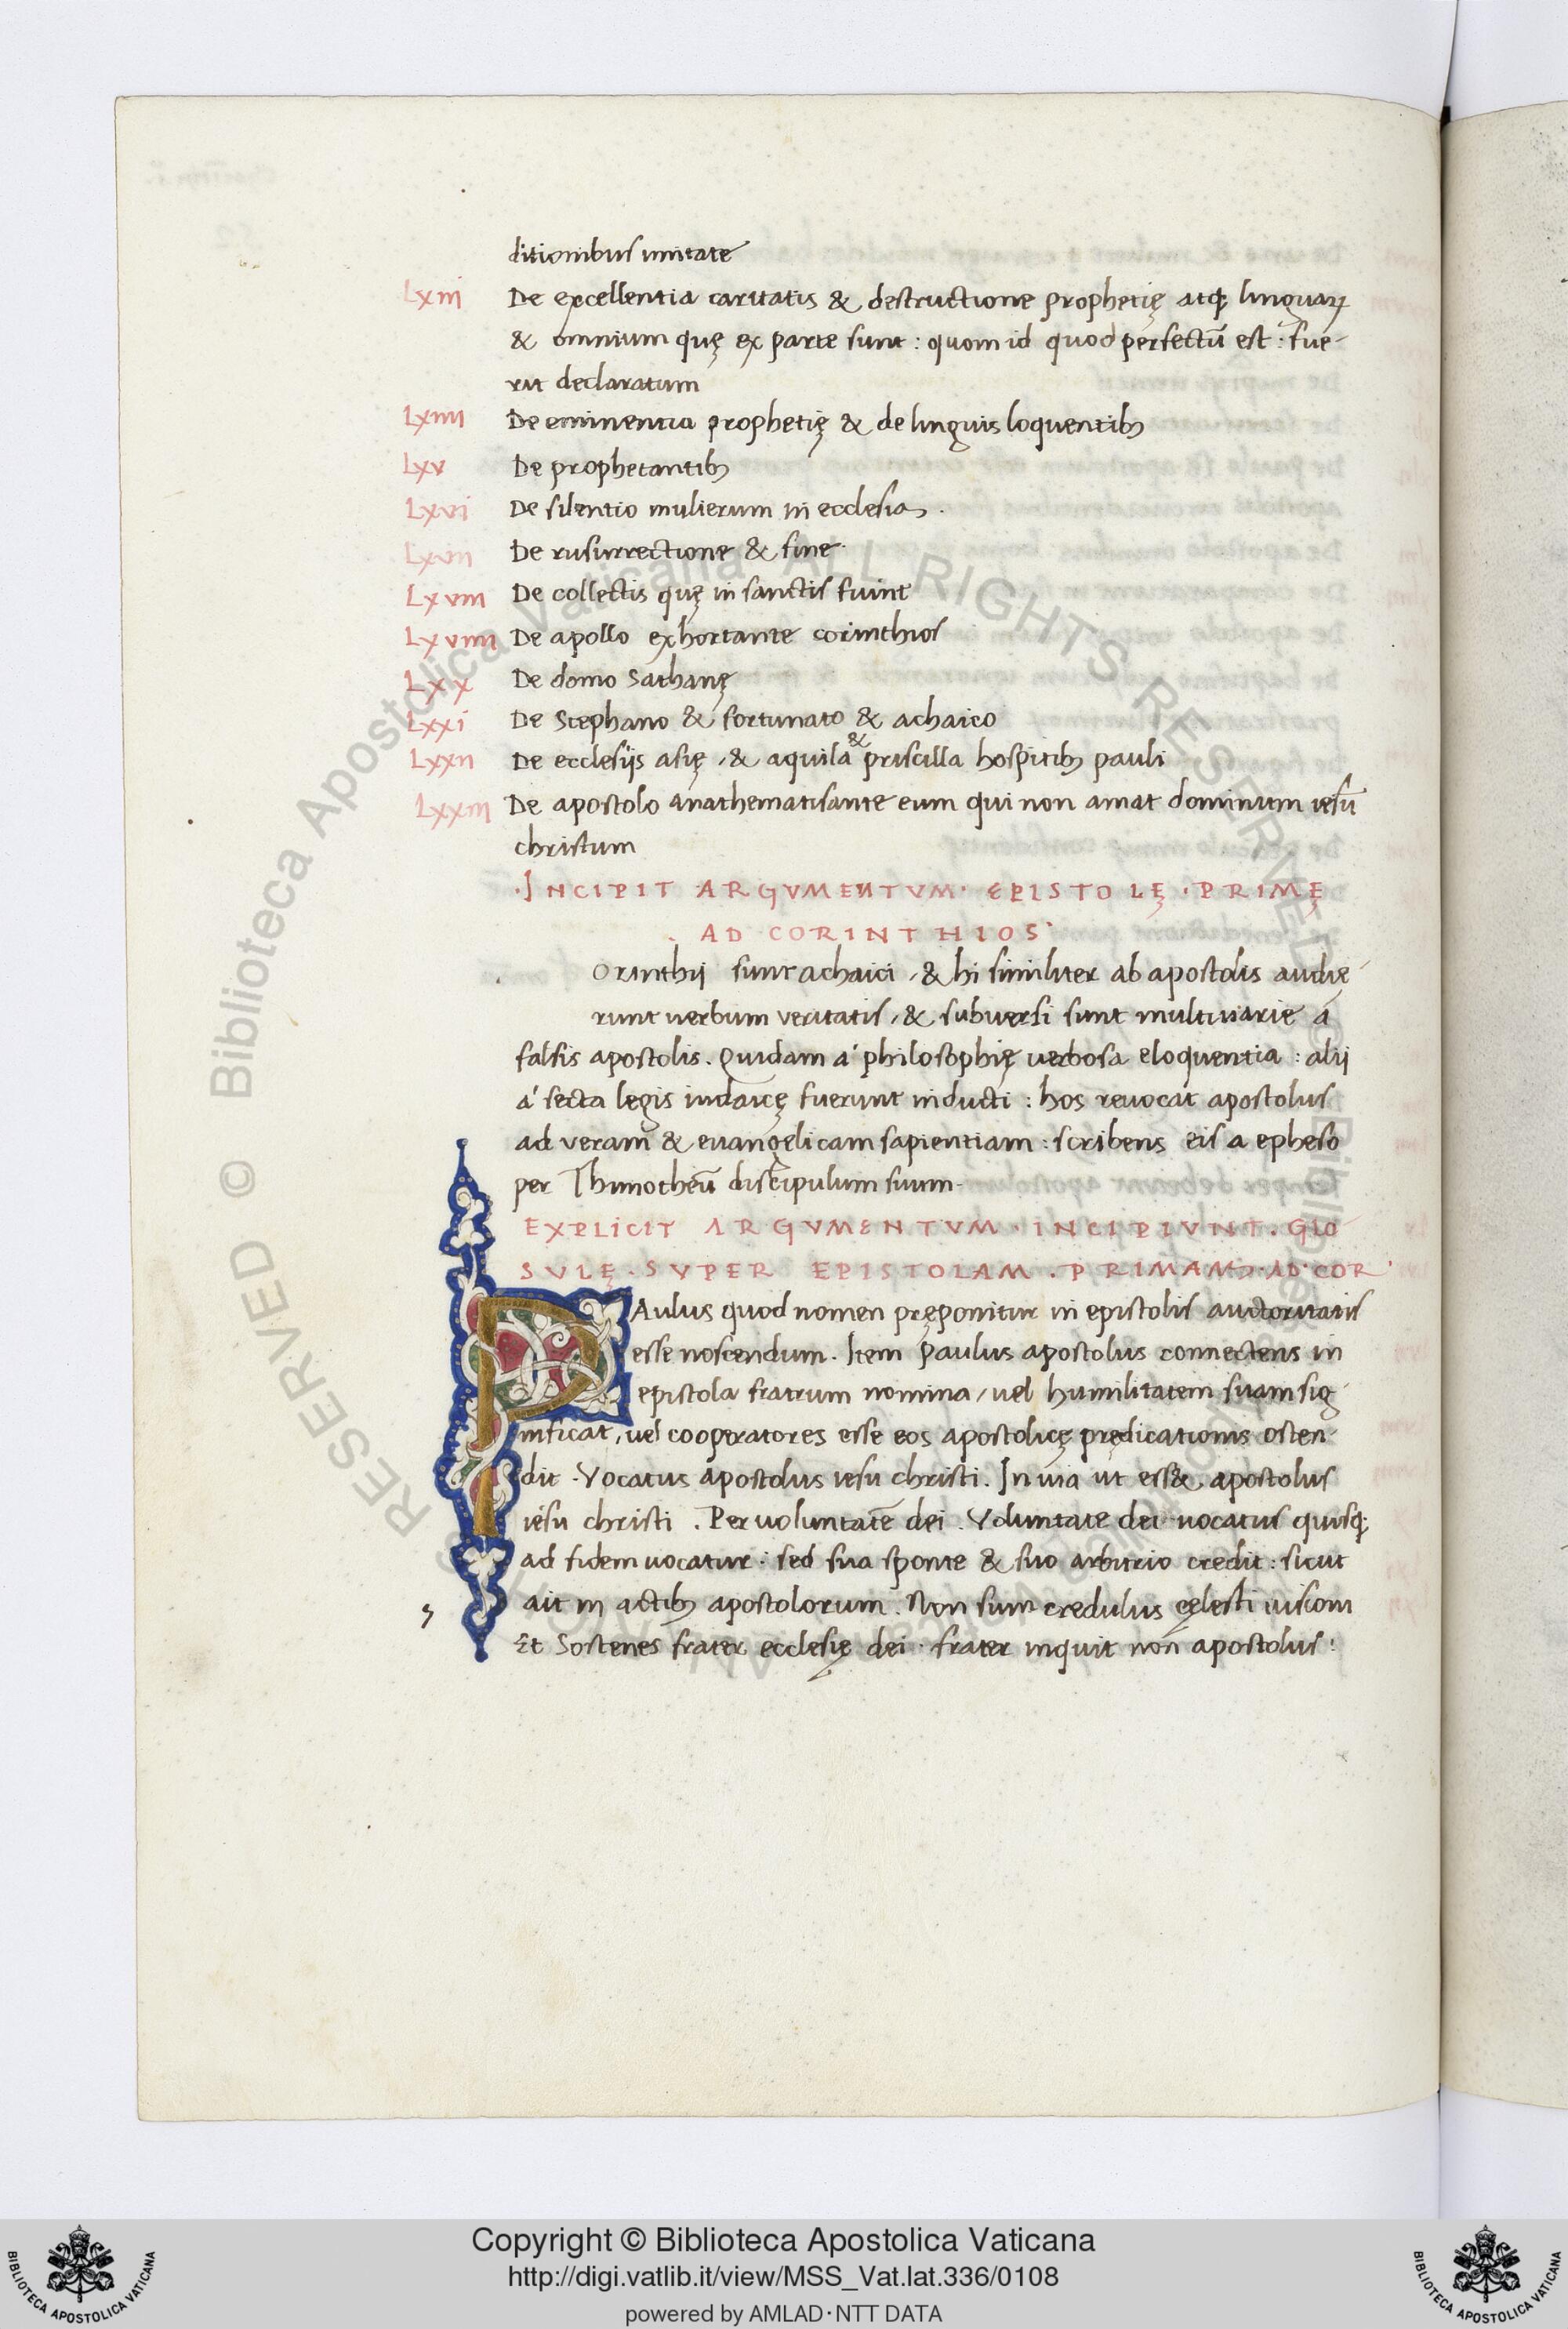 ditionibus unitate
Lxiii De excellentia caritatis & destructione prophetię atq; linguaꝝ
& omnium quę ex parte sunt : quom id quod perfectū est · fue-
rit declaratum
Lxiiii De eminentia prophetię & de linguis loquentibꝫ
Lxv De prophetantibꝫ
Lxvi De silentio mulierum in ecclesia .
Lxvii De rusurrectione & fine ·
Lxviii De collectis quę in sanctis fiunt
Lxviiii De apollo exhortante corinthios
Lxx De domo Sathanę
Lxxi De Stephano & fortunato & achaico
Lxxii De ecclesiis asię , & aquila & priscilla hospitibꝫ pauli
Lxxiii De apostolo anathematisante eum qui non amat dominum iesū
christum
· INCIPIT ARGVMENTVM · EPISTOLĘ · PRIMĘ
. AD CORINTHIOS ·
Orinthij sunt achaici , & hi similiter ab apostolis audię-
runt uerbum veritatis , & subuersi sunt multiuarie á
falsis apostolis . Quidam á philosophię uerbosa eloquentia : alij
á secta legis iudaicę fuerunt inducti : hos reuocat apostolus
ad veram & euangelicam sapientiam : scribens eis a epheso
per Thimotheū discipulum suum .
EXPLICIT ARGVMENTVM · INCIPIVNT . GLO-
SVLĘ . SVPER EPISTOLAM . PRIMAM · AD · COR ·
PAulus quod nomen pręponitur in epistolis auctoritatis
esse noscendum . Item paulus apostolus connectens in
epistola fratrum nomina , uel humilitatem suam sig-
nificat , uel cooperatores esse eos apostolicę prędicationis osten-
dit . Vocatus apostolus iesu christi . In uia ut ess& apostolus
iesu christi . Per uoluntatē dei . Voluntate dei uocatus quisq;
ad fidem uocatur : sed sua sponte & suo arbitrio credit : sicut
ait in actibꝫ apostolorum . Non sum credulus cęlesti uisioni
Et Sostenes frater ecclesię dei · frater inquit non apostolus :
Copyright © Biblioteca Apostolica Vaticana
http://digi.vatlib.it/view/MSS_Vat.lat.336/0108
powered by AMLAD·NTT DATA
BIBLIOTECA APOSTOLICA VATICANA
BIBLIOTECA APOSTOLICA VATICANA
© Biblioteca Apostolica Vaticana ALL RIGHTS RESERVED